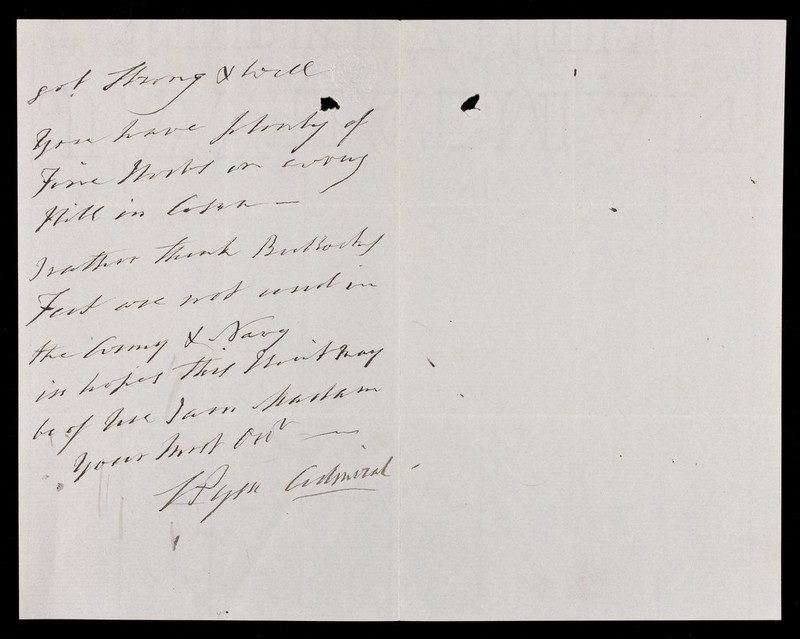 got Strong & Well
You have plenty of
Fine Herbs on every
Hill in
I rather think Bullocks
Feet are not used in
the Army & Navy
in hopes this Hint may
be of Use I am Madam
Your Most Obt
Admiral